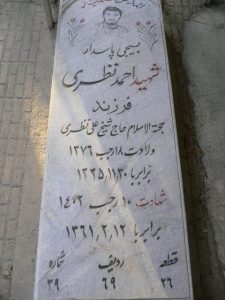 بسیجی پاسدار
شهید احمد نظری
فرزند
حجة الاسلام حاج شیخ علی نظری
ولادت ۱۸ رجب ۱۳۷۶
برابر با ۱۳۳۵٫۱۱٫۳۰
شهادت ۱۰ رجب ۱۴۰۲
برابر با ۱۳۶۱٫۲٫۱۲
قطعه ردیف شماره
۲۶ ۶۹ ۳۹